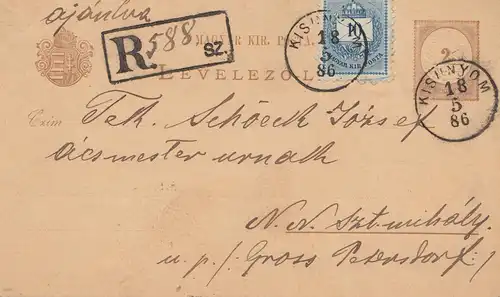 ajánlva
R. 588 SZ.
MAGYAR KIR. P
LEVELEZŐ-L
10
MAGYAR KIR. POSTA
KISUNYOM
18
5
86
2
KISUNYOM
18
5
86
Czim Tek. Schöeck József
ácsmester urnak
N. N. Szt. mihály.
u. p. / Gross Petersdorf /